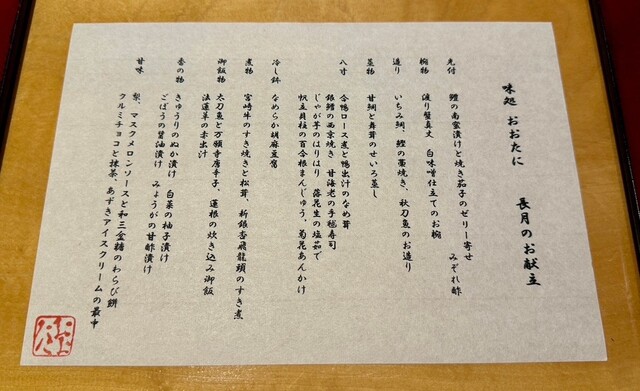 味処 おおたに 長月のお献立
先付 鱧の南蛮漬けと焼き茄子のゼリー寄せ
みぞれ酢
椀物 渡り蟹真丈 白味噌仕立てのお椀
造り いちみ鯛、鰹の藁焼き、秋刀魚のお造り
蒸物 甘鯛と舞茸のせいろ蒸し
八寸 合鴨ロース煮と鴨出汁のなめ茸
銀鱈の西京焼き 甘海老の手毬寿司
じゃが芋のはりはり 落花生の塩茹で
帆立貝柱の百合根まんじゅう、菊花あんかけ
冷し鉢 なめらか胡麻豆腐
煮物 宮崎牛のすき焼きと松茸、新銀杏飛龍頭のすき煮
御飯物 太刀魚と万願寺唐辛子、蓮根の炊き込み御飯
法蓮草の赤出汁
香の物 きゅうりのぬか漬け 白菜の柚子漬け
ごぼうの醤油漬け みょうがの甘酢漬け
甘味 梨、マスクメロンソースと和三盆糖のわらび餅
クルミチョコと抹茶、あずきアイスクリームの最中